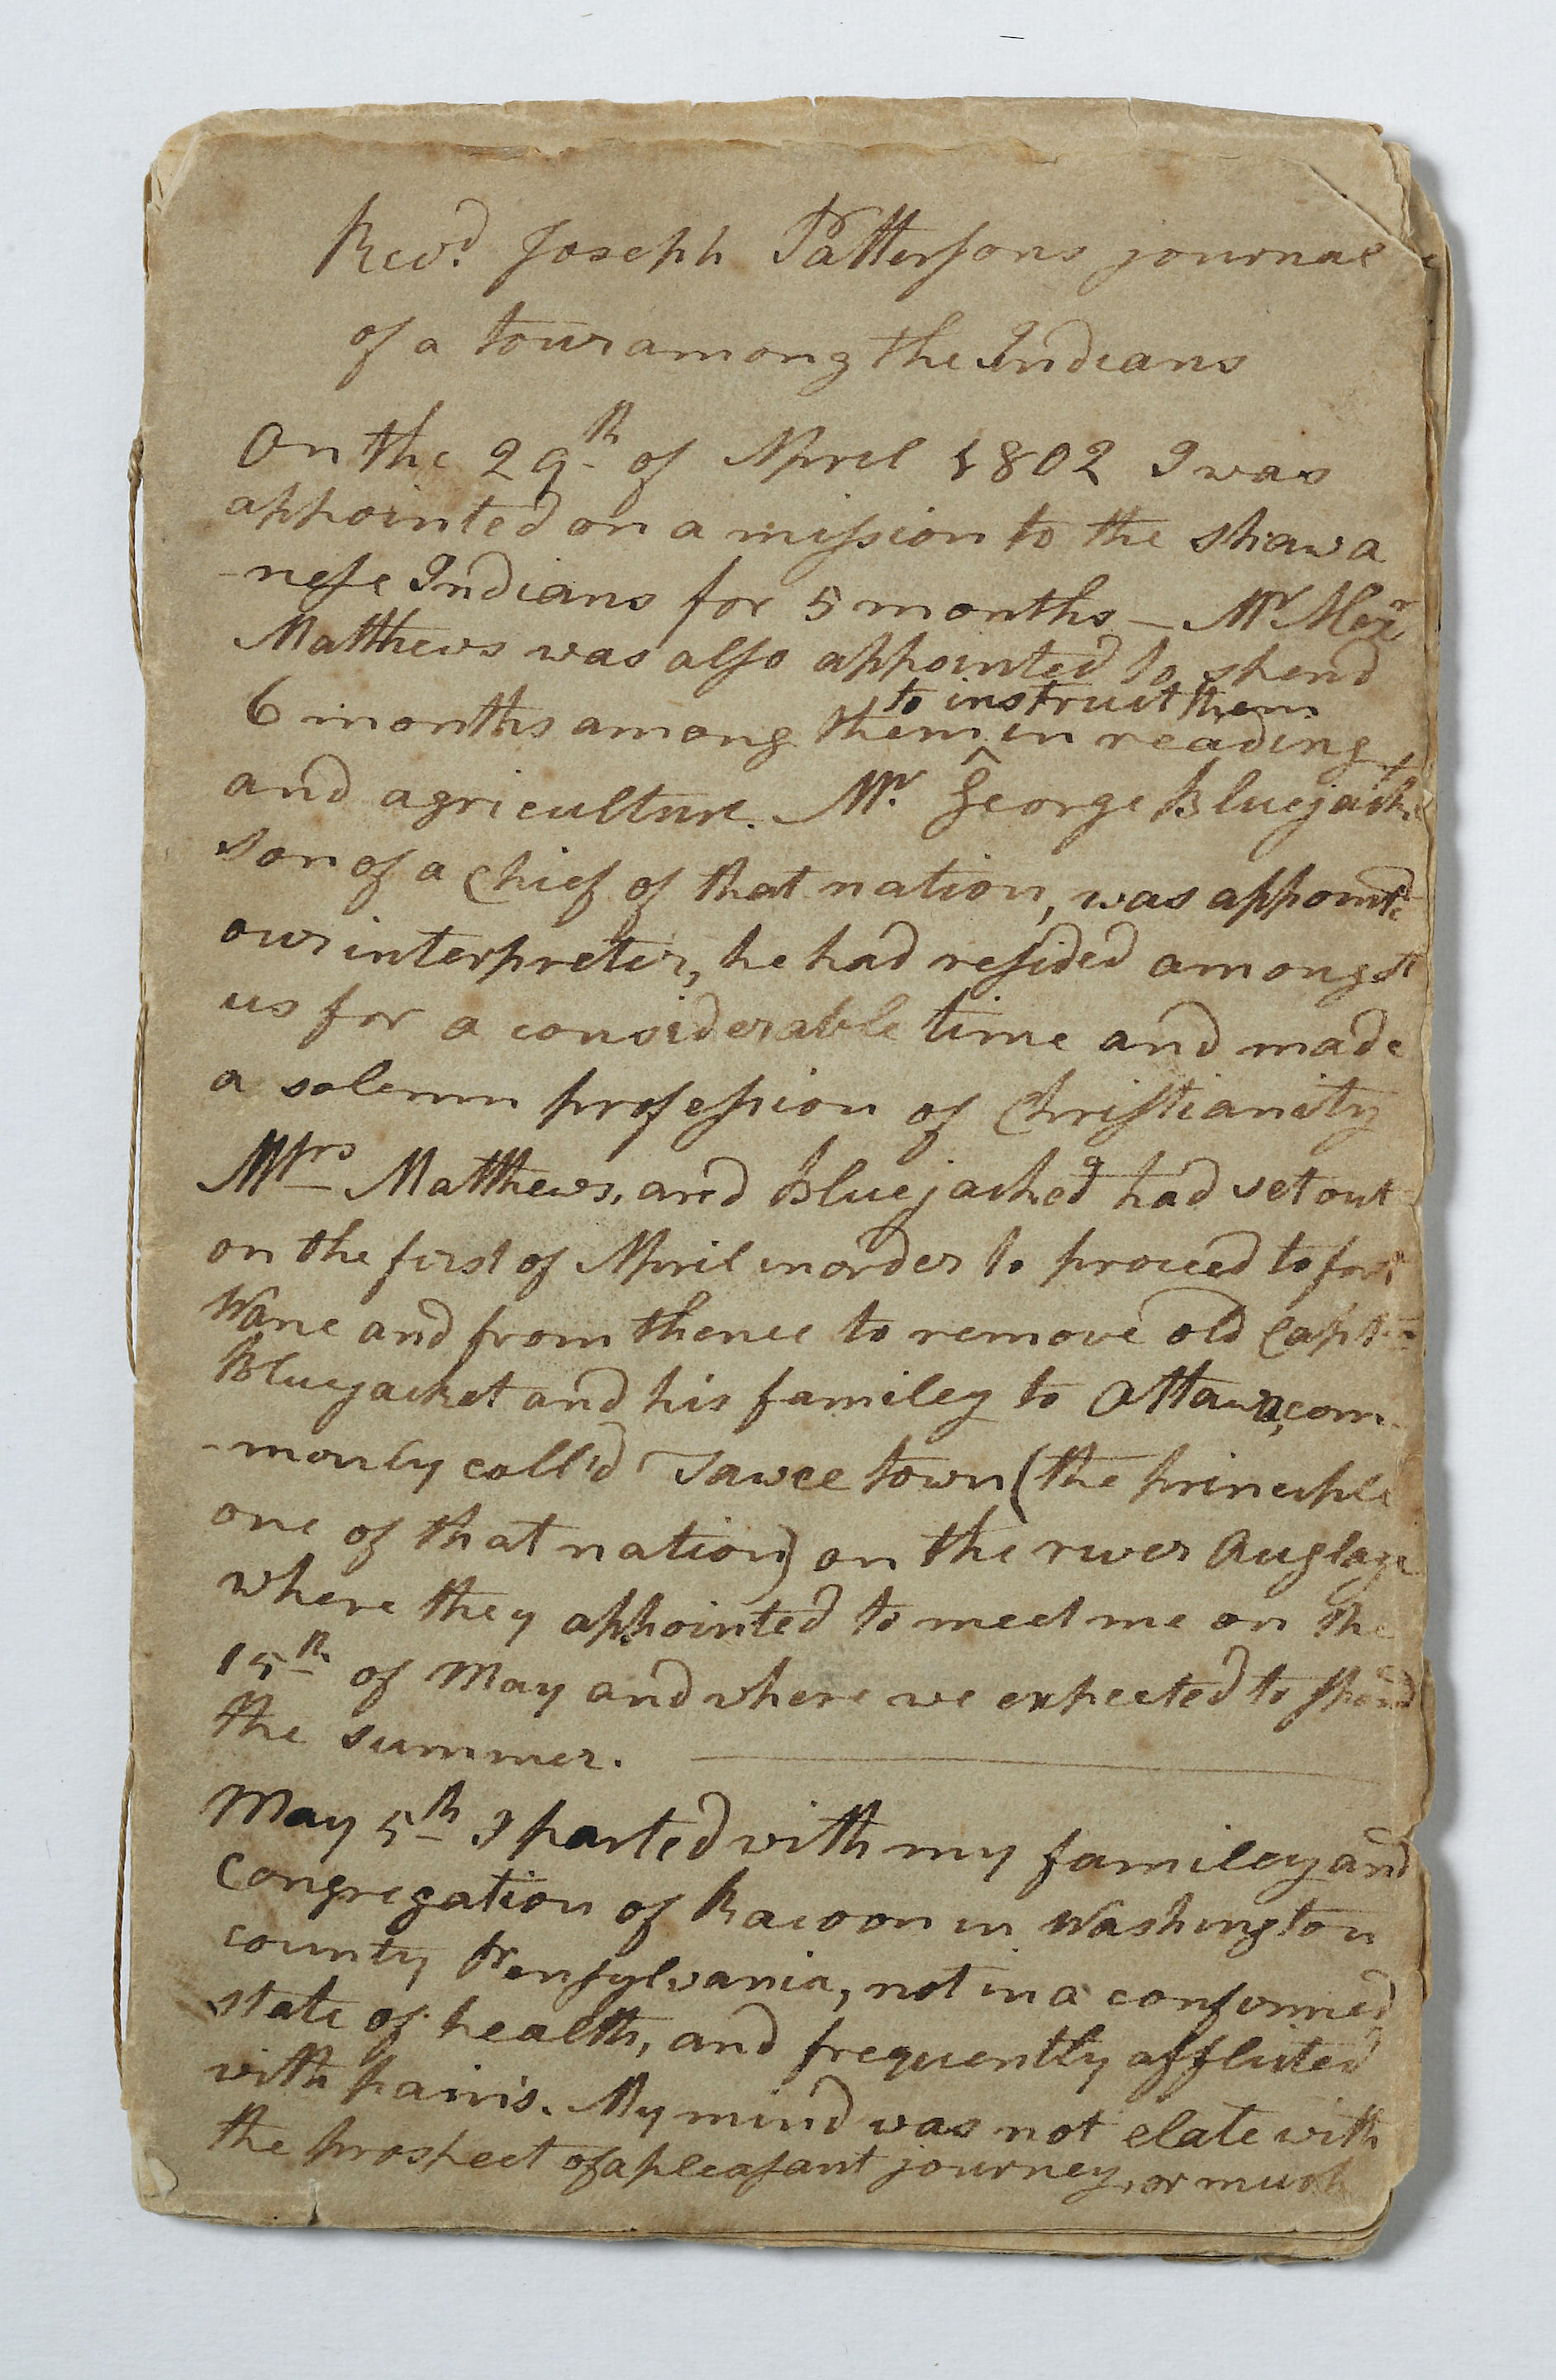 Revd. Joseph Pattersons journal
of a tour among the Indians
On the 29th of April 1802 I was
appointed on a mission to the Shawa
-nese Indians for 5 months — Mr Alexr
Matthews was also appointed to spend
to instruct them
6 months among them ^ in reading
and agriculture. Mr. George Bluejacket
son of a Chief of that nation, was appointd
our interpreter, he had resided amongst
us for a considerable time and made
a solemn profession of Christianity
Mrs Matthews, and Bluejacked had set out
on the first of April in order to proceed to fort
Wane and from thence to remove old Capt
Bluejacket and his familey to Ottawa, com-
-monly call'd Tawee town (the principle
one of that nation) on the river Auglaze
where they appointed to meet me on the
15th of May and where we expected to spend
the summer.
May 5th I parted with my familey and
Congregation of Racoon in Washington
county Pensylvania, not in a confirmed
state of health, and frequently afflicted
with pains. My mind was not elate with
the prospect of a pleasant journey, or much